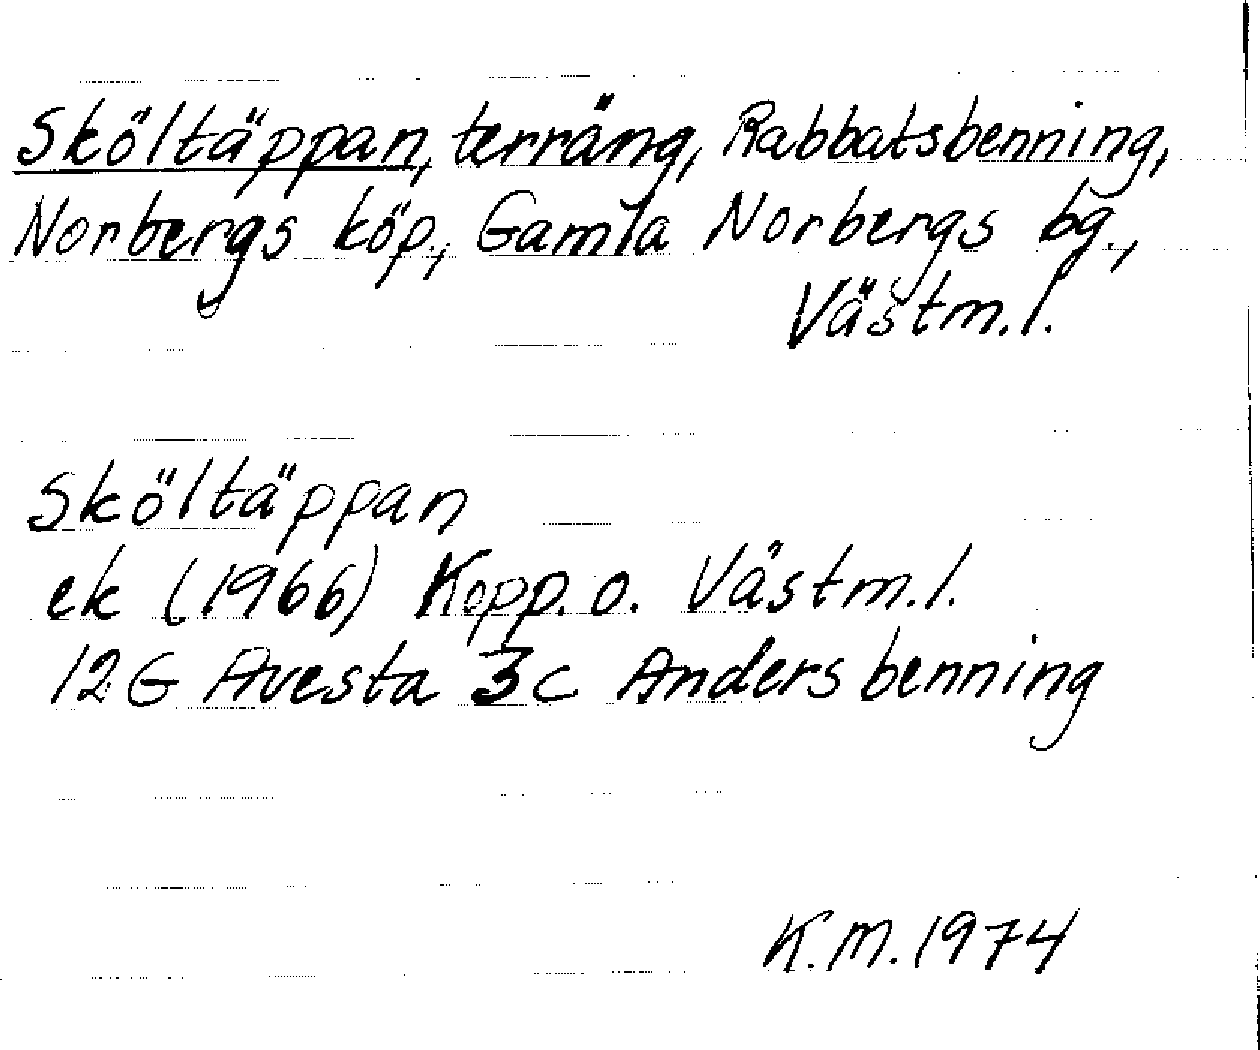 Sköltäppan, terräng, Rabbatsbenning,
Norbergs köp., Gamla Norbergs bg.,
Västm.l.
Sköltäppan
ek (1966) Kopp. o. Västm.l.
12G Avesta 3c Andersbenning
K.M. 1974